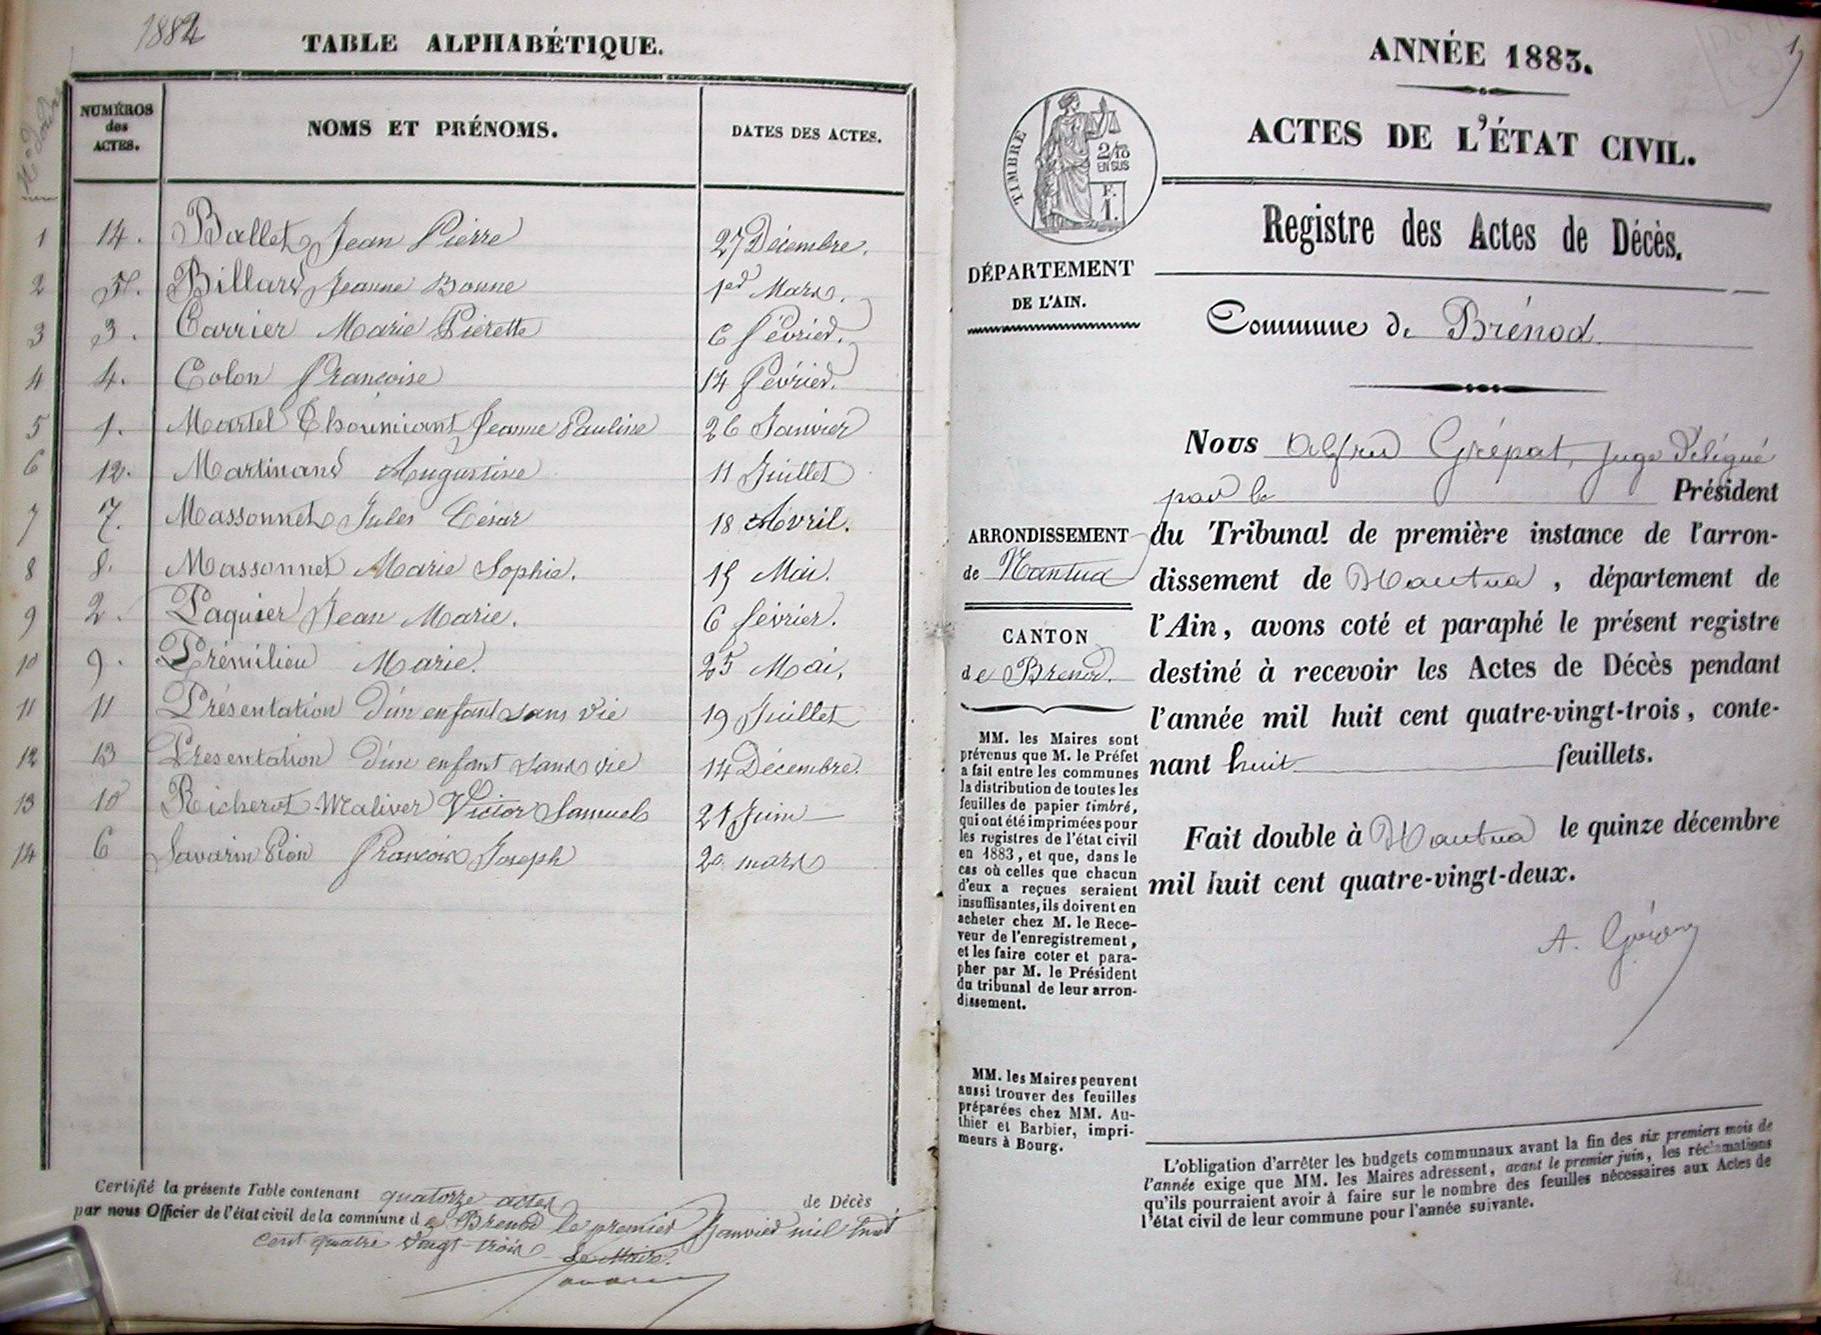 1882
TABLE ALPHABÉTIQUE.
N° d'ordre
NUMÉROS des ACTES. NOMS ET PRÉNOMS. DATES DES ACTES.
1 14. Ballet Jean Pierre 27 Décembre.
2 5. Billard Jeanne Bonne 1er Mars.
3 3. Carrier Marie Pierette 6 février.
4 4. Colon Francoise 14 février.
5 1. Martel Jeanne Pauline 26 Janvier
6 12. Martinand Augustine 11 Juillet
7 7. Massonnet Jules César 18 Avril.
8 8. Massonnet Marie Sophie. 15 Mai.
9 2. Paquier Jean Marie. 6 février.
10 9. Prémilieu Marie. 25 Mai.
11 11 Présentation d'un enfant sans vie 19 Juillet
12 13 Présentation d'un enfant sans vie 14 Décembre.
13 10 Richerot-Maliver Victor Samuel 21 Juin
14 6 Savarin Pion François Joseph 20 mars
Certifié la présente Table contenant quatorze actes de Décès
par nous Officier de l'état civil de la commune de Brenod le premier Janvier mil huit
cent quatre vingt-trois Le Maire.
ANNÉE 1883.
1
ACTES DE L'ÉTAT CIVIL.
TIMBRE
2/10
EN SUS
F.
1.
Registre des Actes de Décès.
DÉPARTEMENT
DE L'AIN.
Commune de Brénod.
Nous Alfred Grépat, juge délégué
par le Président
du Tribunal de première instance de l'arron-
dissement de Nantua, département de
l'Ain, avons coté et paraphé le présent registre
destiné à recevoir les Actes de Décès pendant
l'année mil huit cent quatre-vingt-trois, conte-
nant huit feuillets.
Fait double à Nantua le quinze décembre
mil huit cent quatre-vingt-deux.
ARRONDISSEMENT
de Nantua
CANTON
de Brenod.
MM. les Maires sont
prévenus que M. le Préfet
a fait entre les communes
la distribution de toutes les
feuilles de papier timbré,
qui ont été imprimées pour
les registres de l'état civil
en 1883, et que, dans le
cas où celles que chacun
d'eux a reçues seraient
insuffisantes, ils doivent en
acheter chez M. le Rece-
veur de l'enregistrement,
et les faire coter et para-
pher par M. le Président
du tribunal de leur arron-
dissement.
MM. les Maires peuvent
aussi trouver des feuilles
préparées chez MM. Au-
thier et Barbier, impri-
meurs à Bourg.
L'obligation d'arrêter les budgets communaux avant la fin des six premiers mois de
l'année exige que MM. les Maires adressent, avant le premier juin, les réclamations
qu'ils pourraient avoir à faire sur le nombre des feuilles nécessaires aux Actes de
l'état civil de leur commune pour l'année suivante.